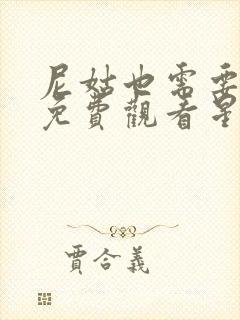 尼姑也需要
免費觀看星
賈合義